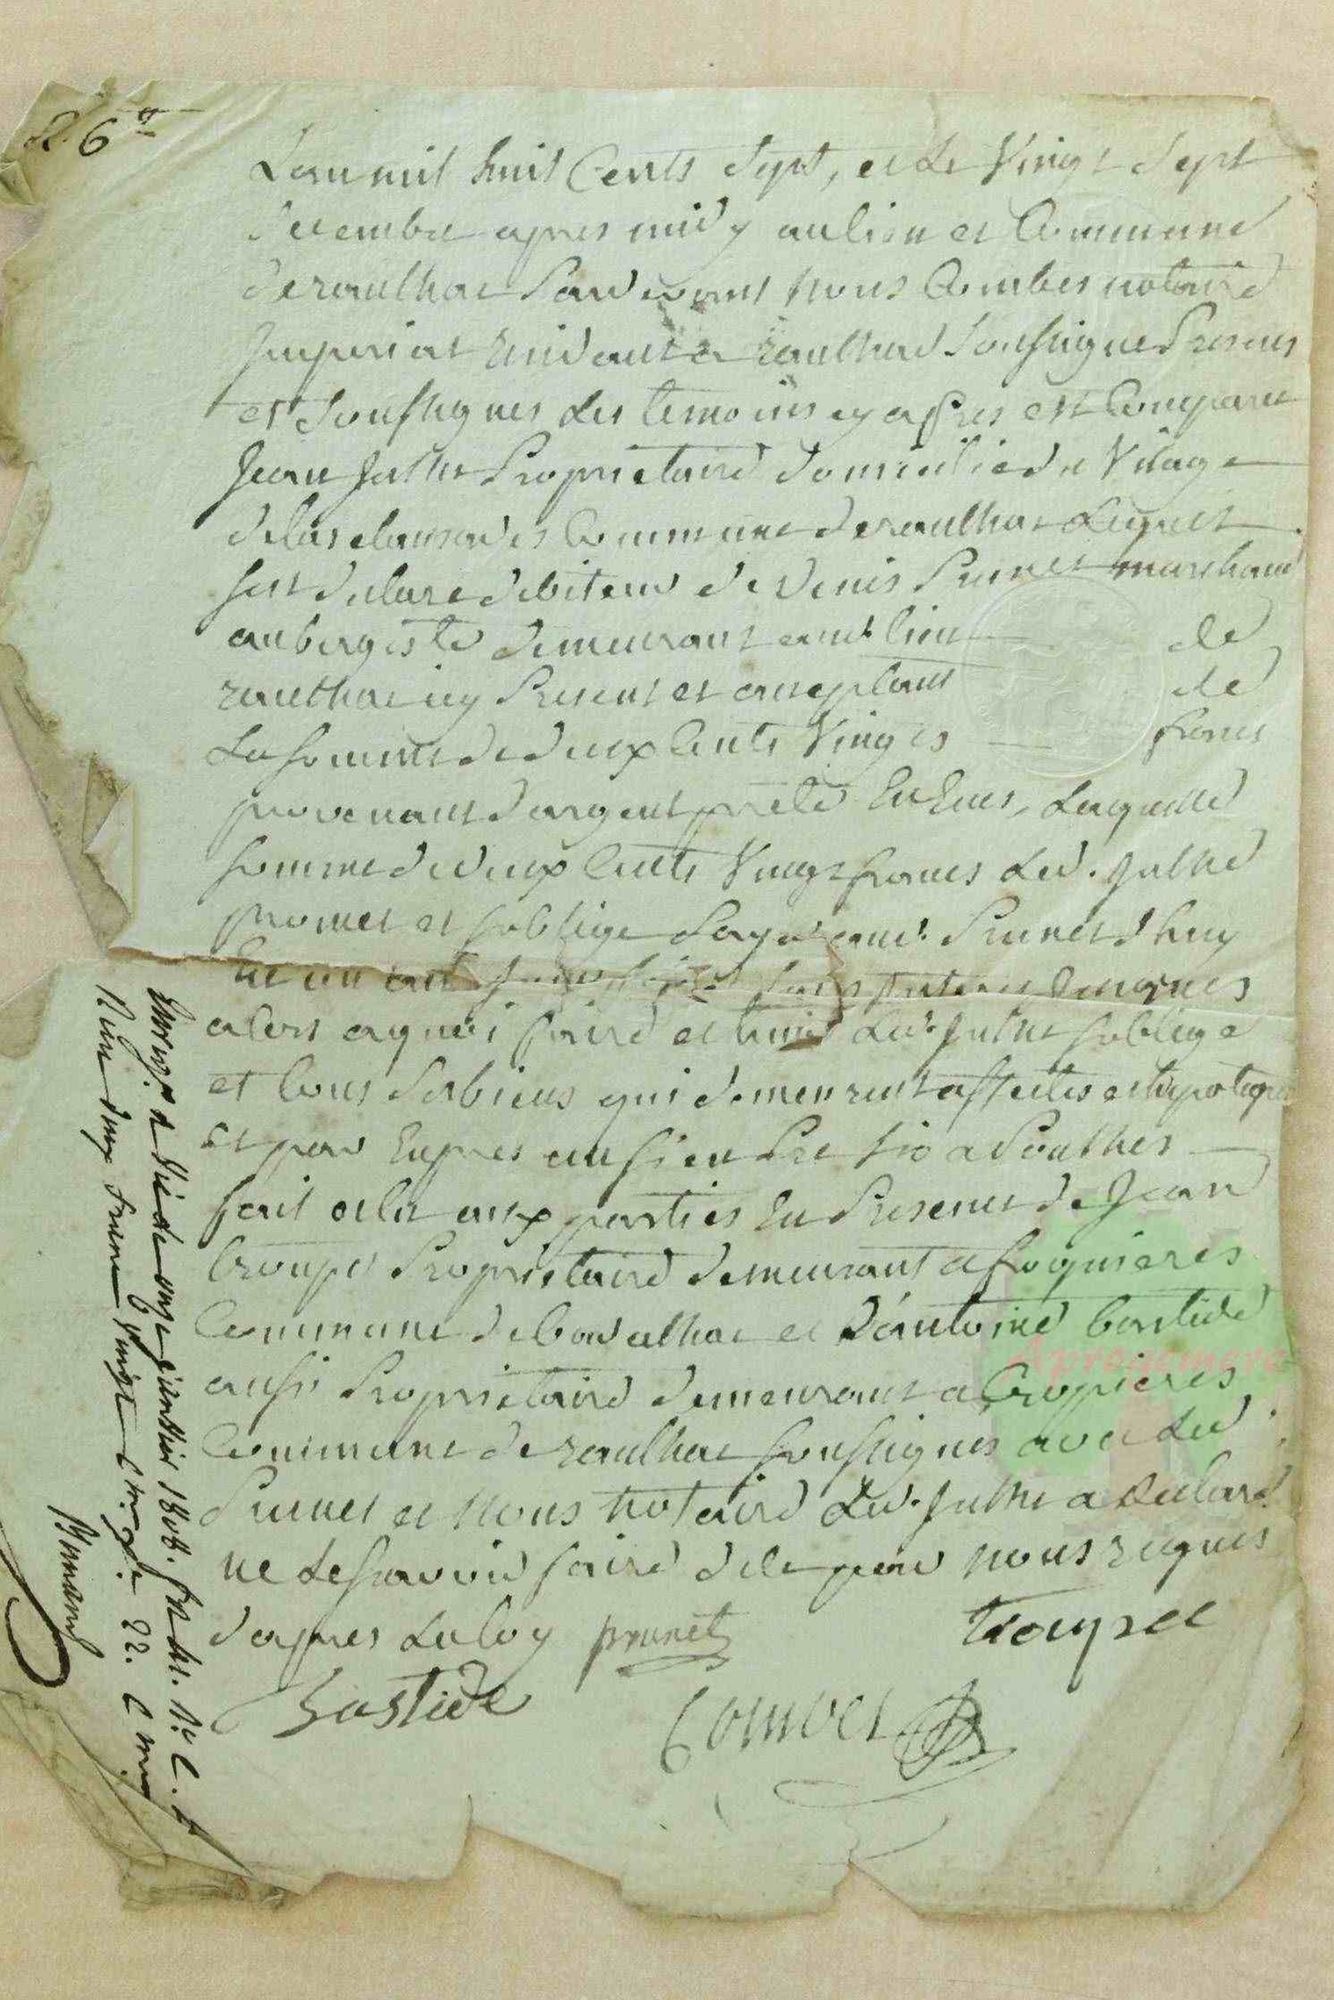 L'an mil huit Cents Sept, et Le Vingt Sept
decembre apres midy au lieu et Commune
de raulhac Pardevant nous Combes notaire
Imperial Residant a raulhac Soussigne Presens
et Soussignes Les temoins cy apres est Comparu
Jean Julhe Proprietaire domicilie du Village
de las Commune de raulhac Lequel
sest declare debiteur de Denis Prunet marchand
aubergiste demeurant aud. lieu de
raulhac icy Present et aceptant de
La somme de deux Cents Vingt francs
provenant d'argent prete La quelle
somme de deux Cents Vingt francs Led. Julhe
promet et soblige Payer aud. Prunet d'huy
En un an sans interet Jusques
alors a quoi faire et tenir Led. Julhe soblige
et tous Ses biens qui demeurent affectes et hipoteques
Et par Expres
fait et lu aux parties En Presence de Jean
troupel Proprietaire demeurant a
Commune de et D'antoine bastide
aussi Proprietaire demeurant a Cropieres
Commune de raulhac soussignes avec Led.
Prunet et Nous Notaire Led. Julhe a declare
ne Le savoir faire de ce par nous requis
d'apres La loy prunet troupel
Bastide Combes
Enregistré à Vic le onze janvier 1808.
Reçu deux francs vingt centimes